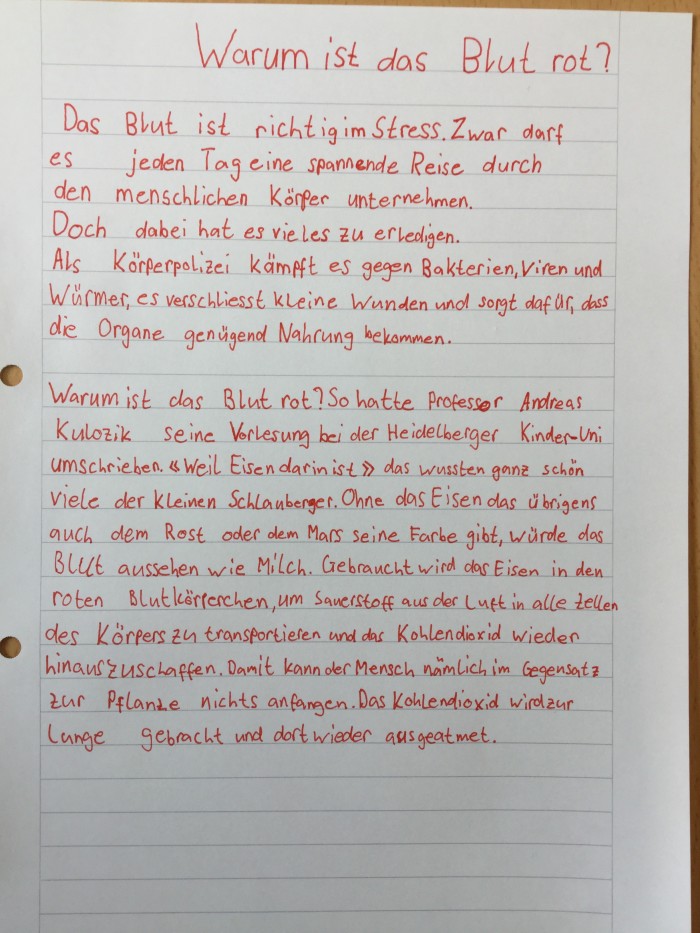 Warum ist das Blut rot?
Das Blut ist richtig im Stress. Zwar darf
es jeden Tag eine spannende Reise durch
den menschlichen Körper unternehmen.
Doch dabei hat es vieles zu erledigen.
Als Körperpolizei kämpft es gegen Bakterien, Viren und
Würmer, es verschliesst kleine Wunden und sorgt dafür, dass
die Organe genügend Nahrung bekommen.
Warum ist das Blut rot? So hatte Professor Andreas
Kulozik seine Vorlesung bei der Heidelberger Kinder-Uni
umschrieben. «Weil Eisen darin ist» das wussten ganz schön
viele der kleinen Schlauberger. Ohne das Eisen das übrigens
auch dem Rost oder dem Mars seine Farbe gibt, würde das
Blut aussehen wie Milch. Gebraucht wird das Eisen in den
roten Blutkörperchen, um Sauerstoff aus der Luft in alle Zellen
des Körpers zu transportieren und das Kohlendioxid wieder
hinauszuschaffen. Damit kann der Mensch nämlich, im Gegensatz
zur Pflanze nichts anfangen. Das Kohlendioxid wird zur
Lunge gebracht und dort wieder ausgeatmet.